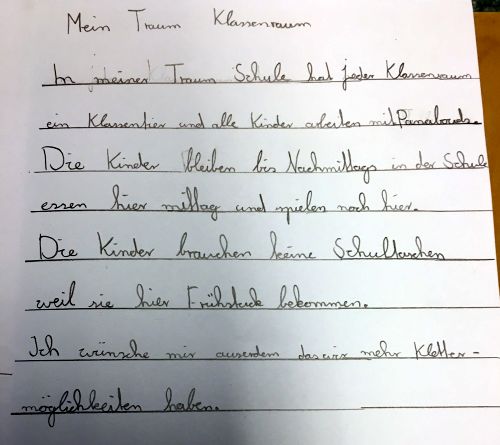 Mein Traum Klassenraum
In meiner Traum Schule hat jeder Klassenraum
ein Klassentier und alle Kinder arbeiten mit Panaboards.
Die Kinder bleiben bis Nachmittags in der Schule
essen hier mittag und spielen noch hier.
Die Kinder brauchen keine Schultaschen
weil sie hier Frühstück bekommen.
Ich wünsche mir auserdem das wir mehr Kletter-
möglichkeiten haben.